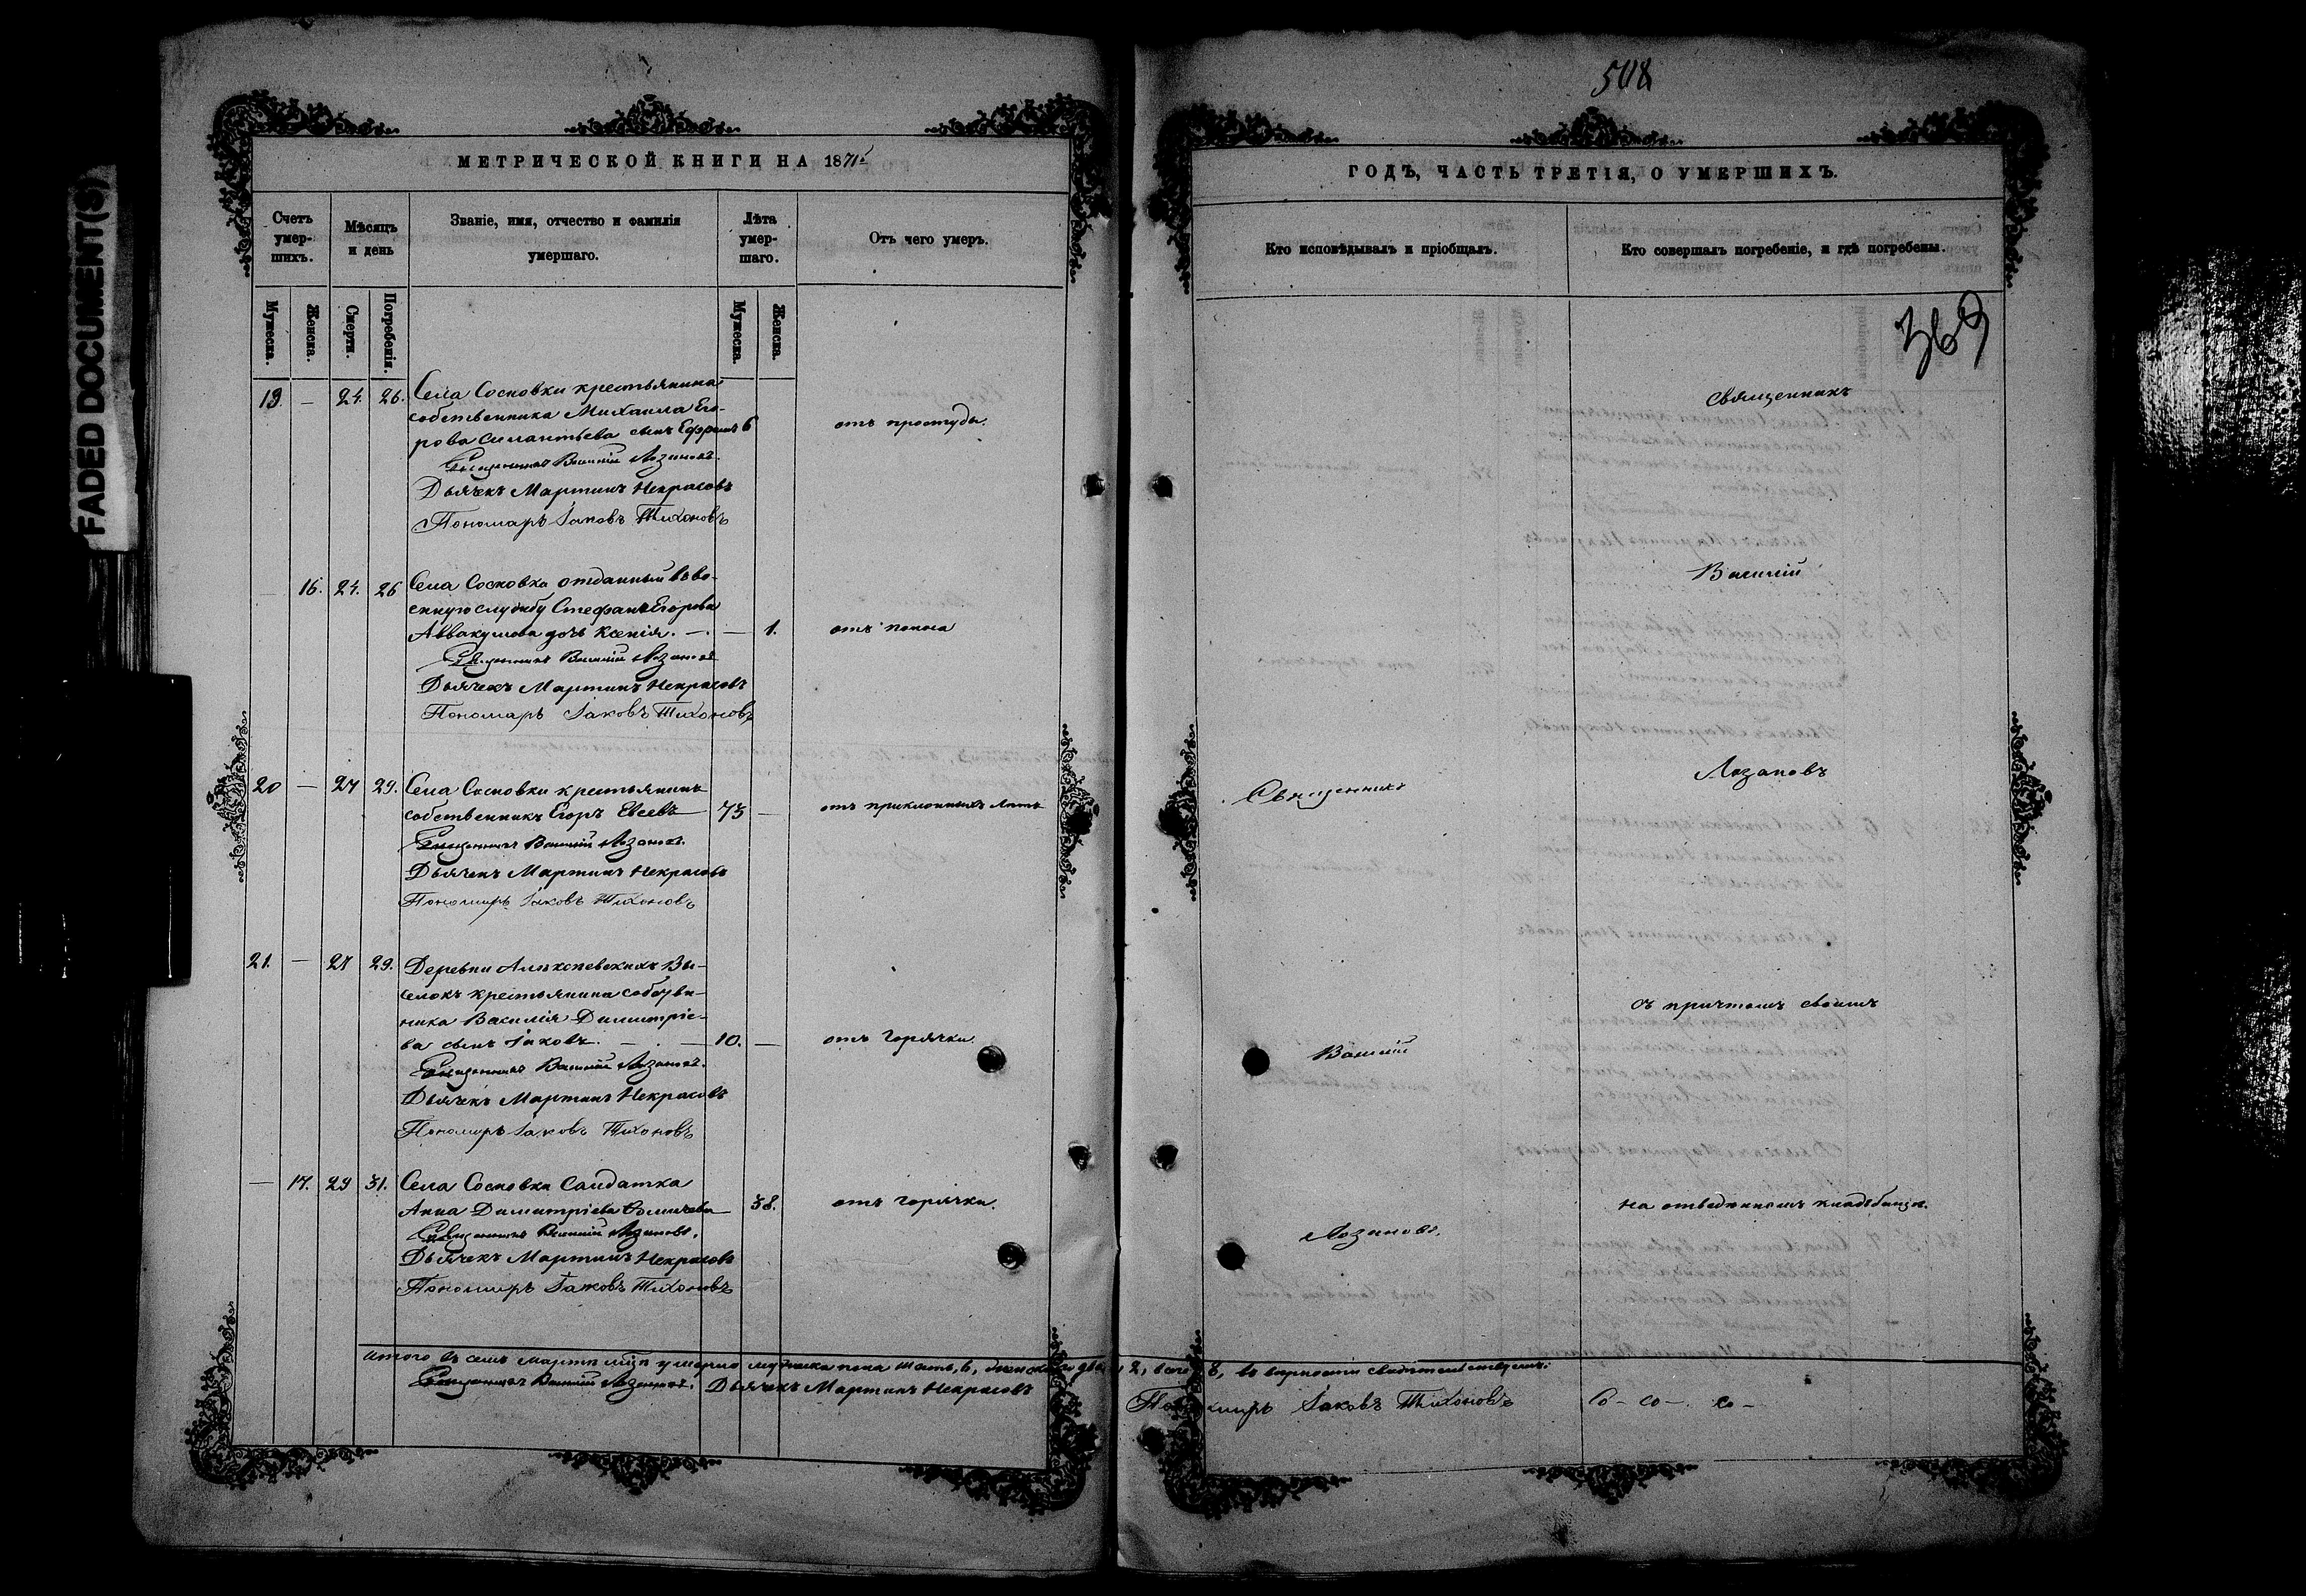 FADED DOCUMENT(S)
МЕТРИЧЕСКОЙ КНИГИ НА 1871
Счетъ умер-шихъ.
Мѣсяцъ и день
Званіе, имя, отчество и фамилія умершаго.
Лѣта умер-шаго.
Отъ чего умеръ.
Мужеска.
Женска.
Смерти.
Погребенія.
Мужеска.
Женска.
19. — 24. 26. Села Сосновки крестьянина
собственника Михаила Его-
рова Силантьева сынъ Ефремъ 6 отъ простуды.
Священникъ Василій Лозановъ.
Дьячекъ Мартинъ Некрасовъ
Пономарь Іаковъ Тихоновъ
16. 24. 26 Села Сосновка отданный въ во-
енную службу Стефанъ Егорова
Аввакумова дочь Ксенія. — . — 1. отъ поноса
Священникъ Василій Лозановъ
Дьячекъ Мартинъ Некрасовъ
Пономарь Іаковъ Тихоновъ
20 — 27 29. Села Сосновки крестьянинъ
собственникъ Егоръ Евсеевъ — 73 — отъ приклонныхъ лѣтъ
Священникъ Василій Лозановъ.
Дьячекъ Мартинъ Некрасовъ
Пономарь Іаковъ Тихоновъ
21. — 27 29. Деревни Вы-
селокъ крестьянина собств-
ника Василія Димитріе-
ва сынъ Іаковъ. — . — 10. — отъ горячки.
Священникъ Василій Лозановъ.
Дьячекъ Мартинъ Некрасовъ
Пономарь Іаковъ Тихоновъ
— 17. 29 31. Села Сосновки Салдатка
Анна Димитріева 38. отъ горячки.
Священникъ Василій Лозановъ.
Дьячекъ Мартинъ Некрасовъ
Пономарь Іаковъ Тихоновъ
Итого въ семъ мартѣ м-цѣ умерло мужеска пола шесть, 6, женскаго два, 2, всего 8, въ вѣрности свидѣтельствуемъ:
Священникъ Василій Лозановъ. Дьячекъ Мартинъ Некрасовъ
Пономарь Іаковъ Тихоновъ
508
ГОДЪ, ЧАСТЬ ТРЕТІЯ, О УМЕРШИХЪ.
Кто исповѣдывалъ и пріобщалъ.
Кто совершалъ погребеніе, и гдѣ погребены.
369
Священникъ
Василій
Лозановъ
съ причтомъ своимъ
на отведенномъ кладбищѣ.
Священникъ
Василій
Лозановъ.